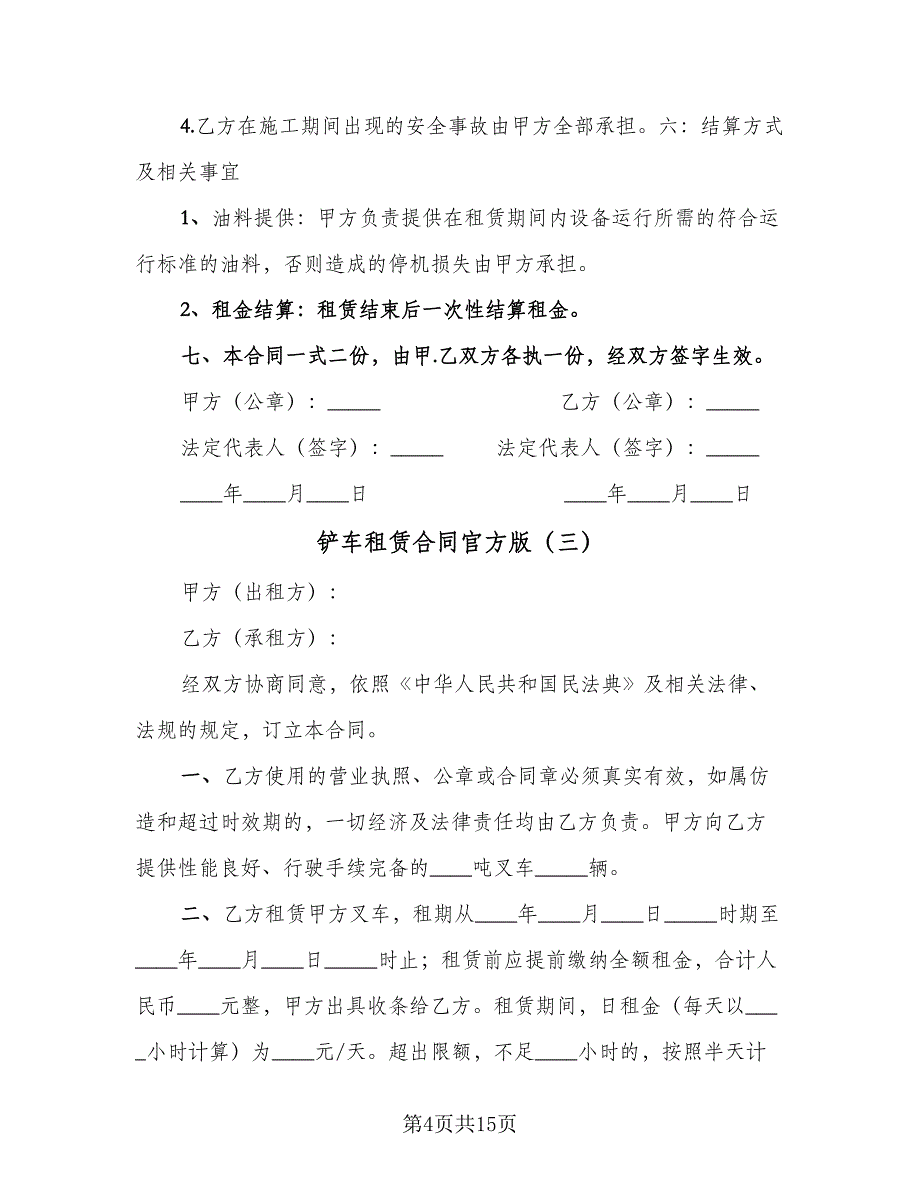 4.乙方在施工期间出现的安全事故由甲方全部承担。六：结算方式
及相关事宜
1、油料提供：甲方负责提供在租赁期间内设备运行所需的符合运
行标准的油料，否则造成的停机损失由甲方承担。
2、租金结算：租赁结束后一次性结算租金。
七、本合同一式二份，由甲.乙双方各执一份，经双方签字生效。
甲方（公章）：_____ 乙方（公章）：_____
法定代表人（签字）：_____ 法定代表人（签字）：_____
____年____月____日 ____年____月____日
铲车租赁合同官方版（三）
甲方（出租方）：
乙方（承租方）：
经双方协商同意，依照《中华人民共和国民法典》及相关法律、
法规的规定，订立本合同。
一、乙方使用的营业执照、公章或合同章必须真实有效，如属仿
造和超过时效期的，一切经济及法律责任均由乙方负责。甲方向乙方
提供性能良好、行驶手续完备的____吨叉车_____辆。
二、乙方租赁甲方叉车，租期从____年____月____日_____时期至
____年____月____日_____时止；租赁前应提前缴纳全额租金，合计人
民币____元整，甲方出具收条给乙方。租赁期间，日租金（每天以___
_小时计算）为____元/天。超出限额，不足____小时的，按照半天计
第4页共15页